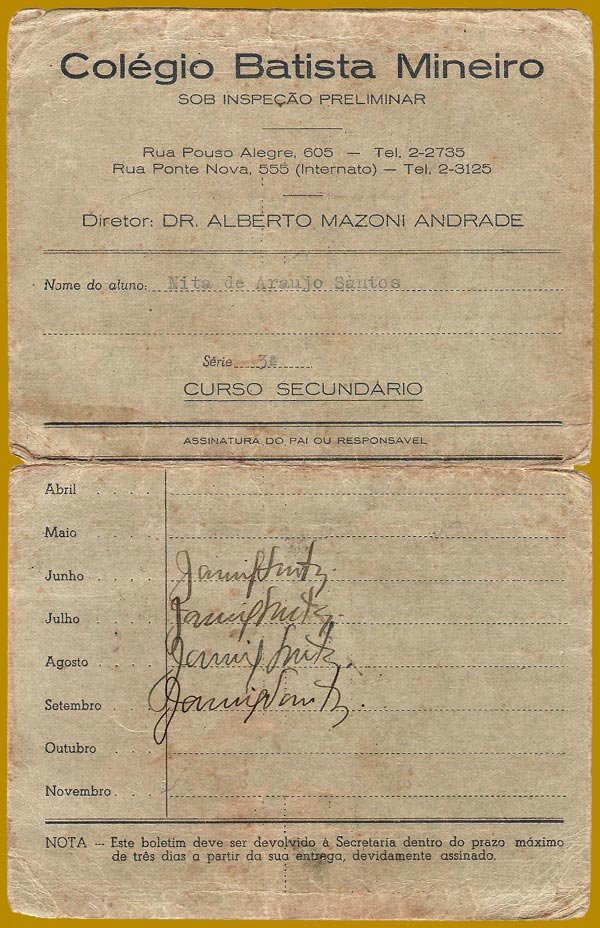 Colégio Batista Mineiro
SOB INSPEÇÃO PRELIMINAR
Rua Pouso Alegre, 605 — Tel. 2-2735
Rua Ponte Nova, 555 (Internato) — Tel. 2-3125
Diretor: DR. ALBERTO MAZONI ANDRADE
Nome do aluno: Nita de Araujo Santos
Série 3ª
CURSO SECUNDÁRIO
ASSINATURA DO PAI OU RESPONSAVEL
Abril
Maio
Junho
Julho
Agosto
Setembro
Outubro
Novembro
NOTA — Este boletim deve ser devolvido à Secretaría dentro do prazo máximo
de três dias a partir da sua entrega, devidamente assinado.